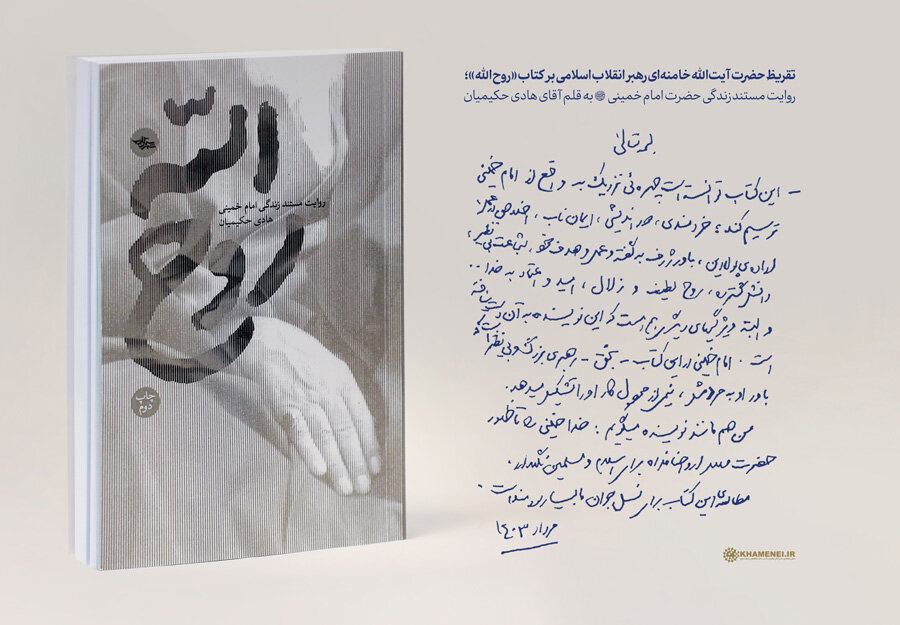 روح الله
روایت مستند زندگی امام خمینی
هادی حکیمیان
چاپ
دوم
تقریظ حضرت آیت‌الله خامنه‌ای رهبر انقلاب اسلامی بر کتاب «روح الله»؛
روایت مستند زندگی حضرت امام خمینی به قلم آقای هادی حکیمیان
بسمه تعالی
- این کتاب توانسته است چهره‌ئی نزدیک به واقع از امام خمینی
ترسیم کند؛ خردمندی، دوراندیشی، ایمان ناب، اخلاص در عمل
اراده‌ی پولادین، باور ژرف به گفته و عمل و هدف خود، شجاعت بی‌نظیر،
دانش گسترده، روح لطیف و زلال، امید و اعتماد به خدا...
و البته ویژگیهای دیگری هم است که این نویسنده به آن دست نیافته
است. امام خمینی در این کتاب - بحق - رهبری بزرگ و بی‌نظیر است
باور او به مردمش، نیمی از محصول کار او را تشکیل میدهد.
من هم مانند نویسنده میگویم: خدا خمینی را تا ظهور
حضرت مهدی ارواحنا فداه برای اسلام و مسلمین نگهدارد.
مطالعه‌ی این کتاب برای نسل جوان ما بسیار سودمند است.
مرداد ۱۴۰۳
KHAMENEI.IR